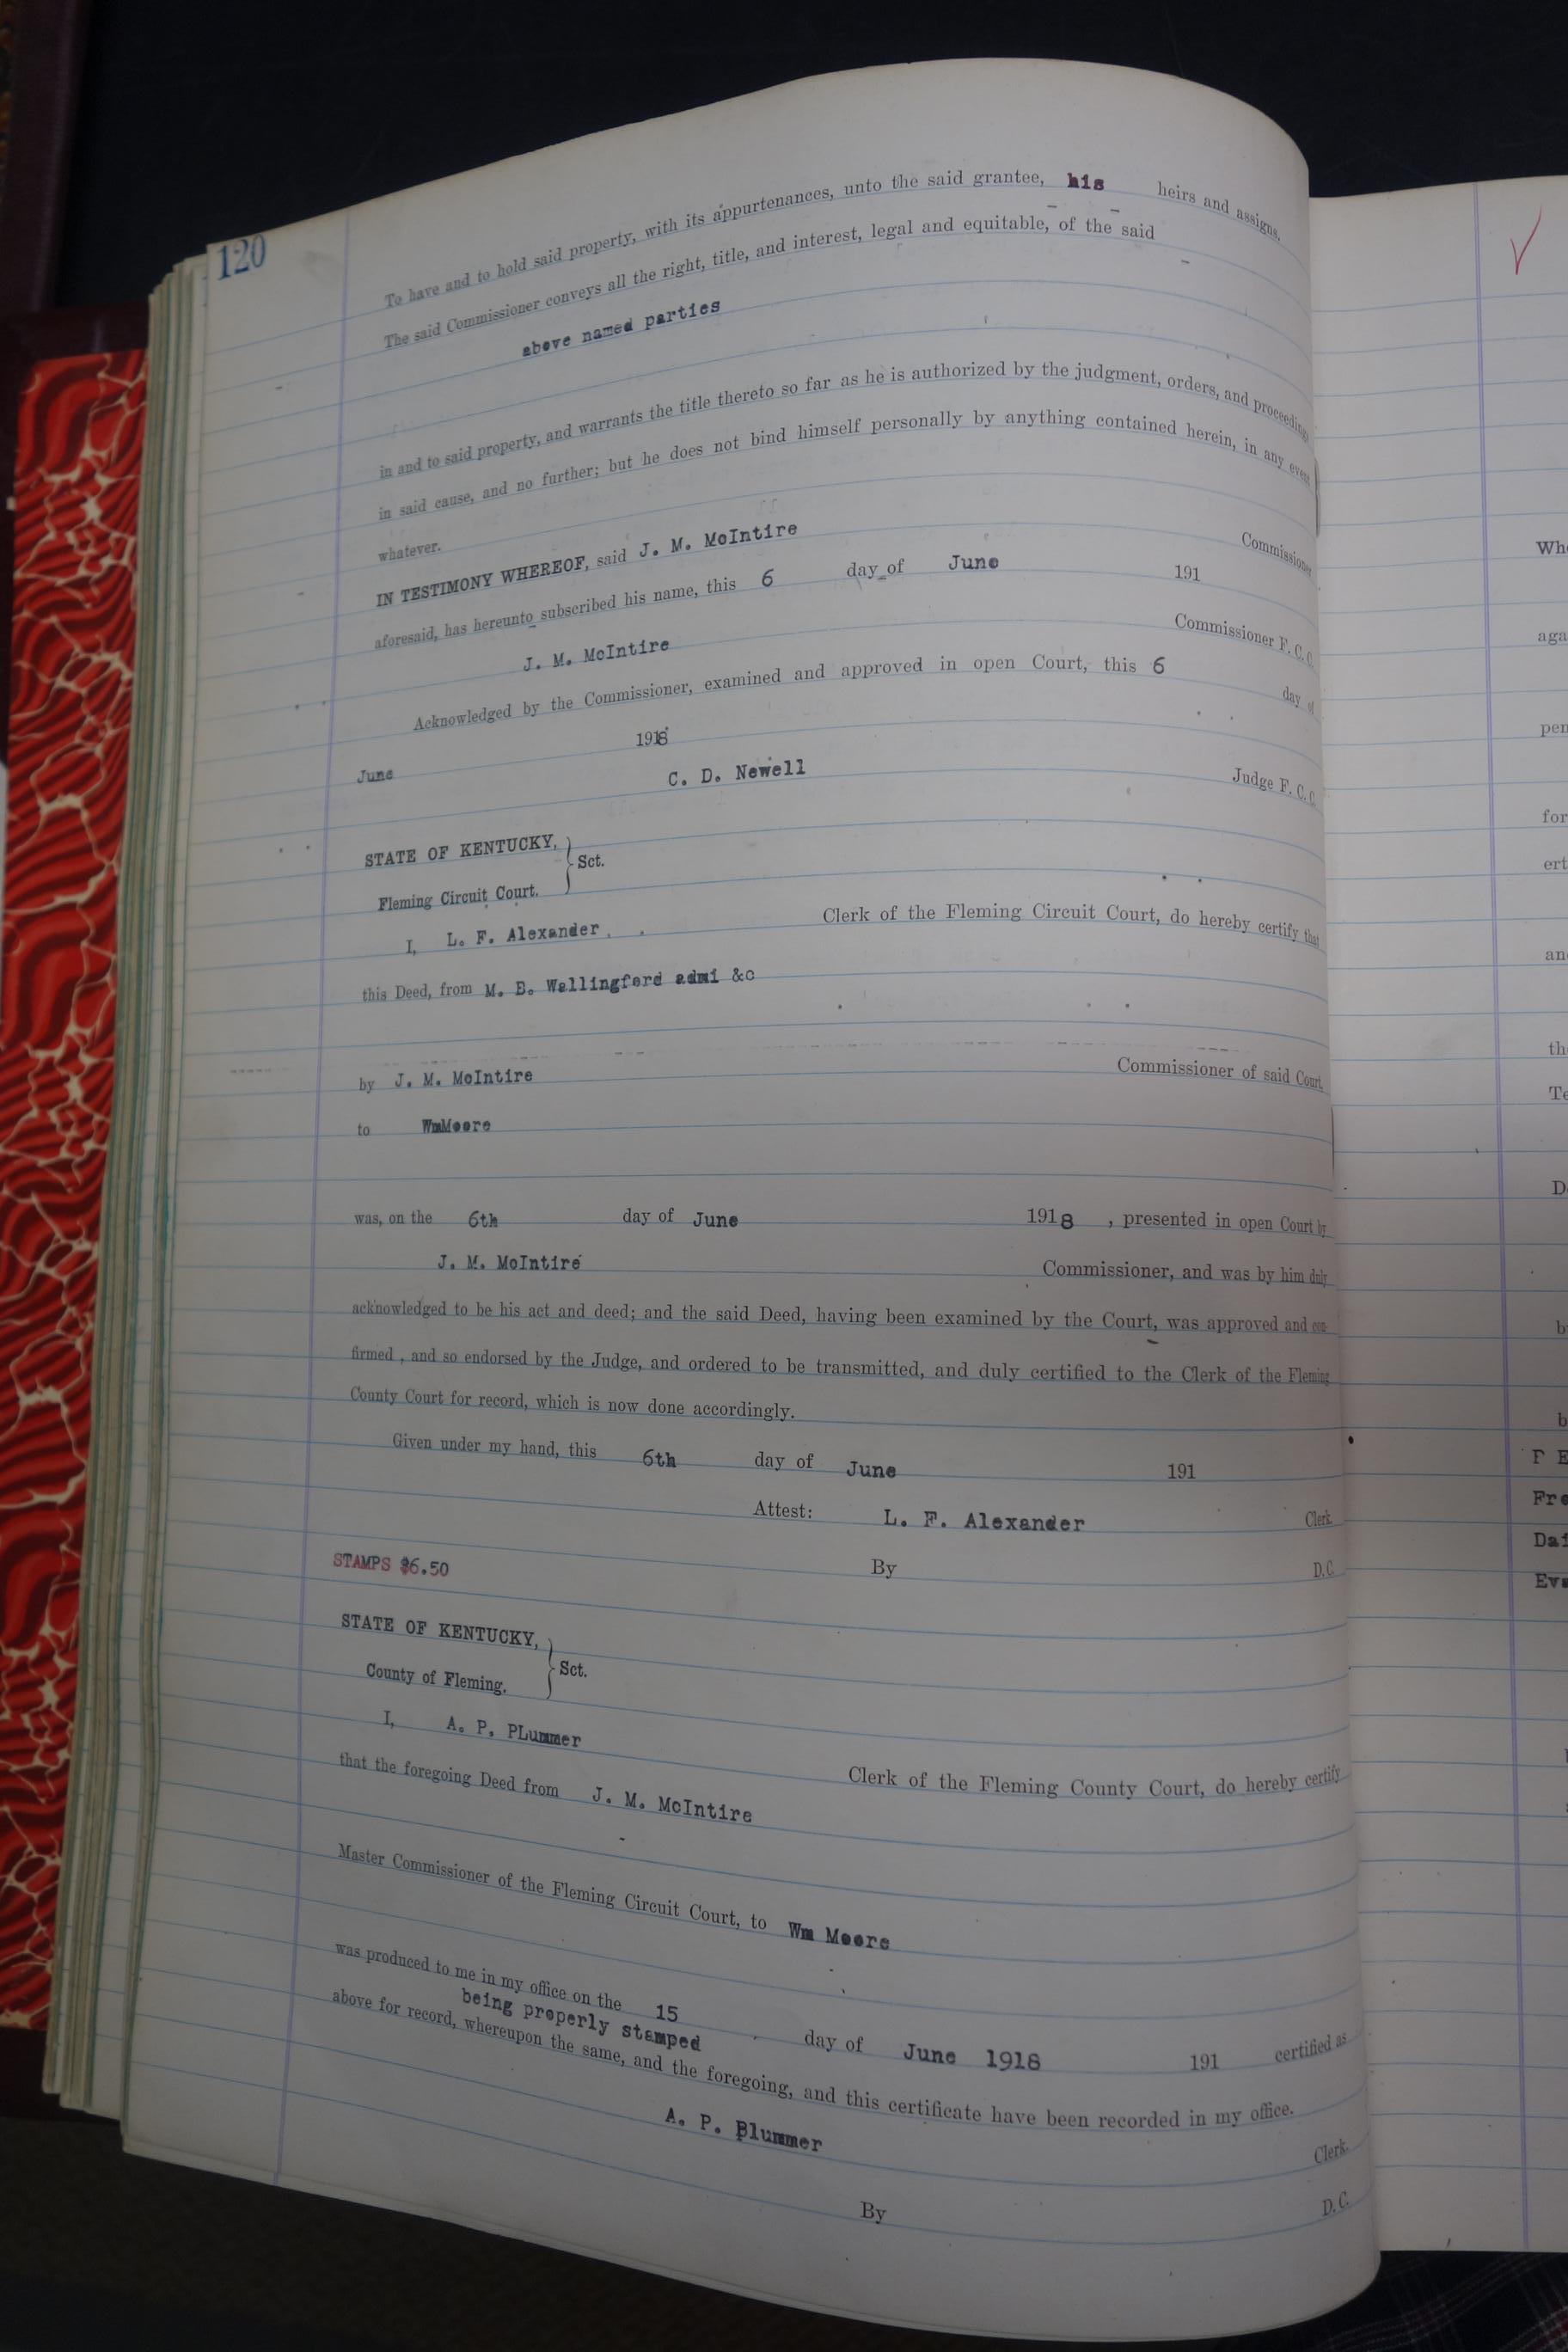 120
To have and to hold said property, with its appurtenances, unto the said grantee, his heirs and assigns.
The said Commissioner conveys all the right, title, and interest, legal and equitable, of the said
above named parties
in and to said property, and warrants the title thereto so far as he is authorized by the judgment, orders, and proceedings
in said cause, and no further; but he does not bind himself personally by anything contained herein, in any event
whatever.
IN TESTIMONY WHEREOF, said J. M. McIntire Commissioner
aforesaid, has hereunto subscribed his name, this 6 day of June 191
J. M. McIntire Commissioner F. C. C.
Acknowledged by the Commissioner, examined and approved in open Court, this 6 day of
June 1918
C. D. Newell Judge F. C. C.
STATE OF KENTUCKY,
Fleming Circuit Court. } Sct.
I, L. F. Alexander Clerk of the Fleming Circuit Court, do hereby certify that
this Deed, from M. B. Wallingford admi &c
by J. M. McIntire Commissioner of said Court
to WmMoore
was, on the 6th day of June 1918 , presented in open Court by
J. M. McIntire Commissioner, and was by him duly
acknowledged to be his act and deed; and the said Deed, having been examined by the Court, was approved and con-
firmed , and so endorsed by the Judge, and ordered to be transmitted, and duly certified to the Clerk of the Fleming
County Court for record, which is now done accordingly.
Given under my hand, this 6th day of June 191
Attest: L. F. Alexander Clerk
By D. C.
STAMPS $6.50
STATE OF KENTUCKY,
County of Fleming. } Sct.
I, A. P. PLummer Clerk of the Fleming County Court, do hereby certify
that the foregoing Deed from J. M. McIntire
Master Commissioner of the Fleming Circuit Court, to Wm Moore
was produced to me in my office on the 15 day of June 1918 191 certified as
being properly stamped
above for record, whereupon the same, and the foregoing, and this certificate have been recorded in my office.
A. P. Plummer Clerk.
By D. C.